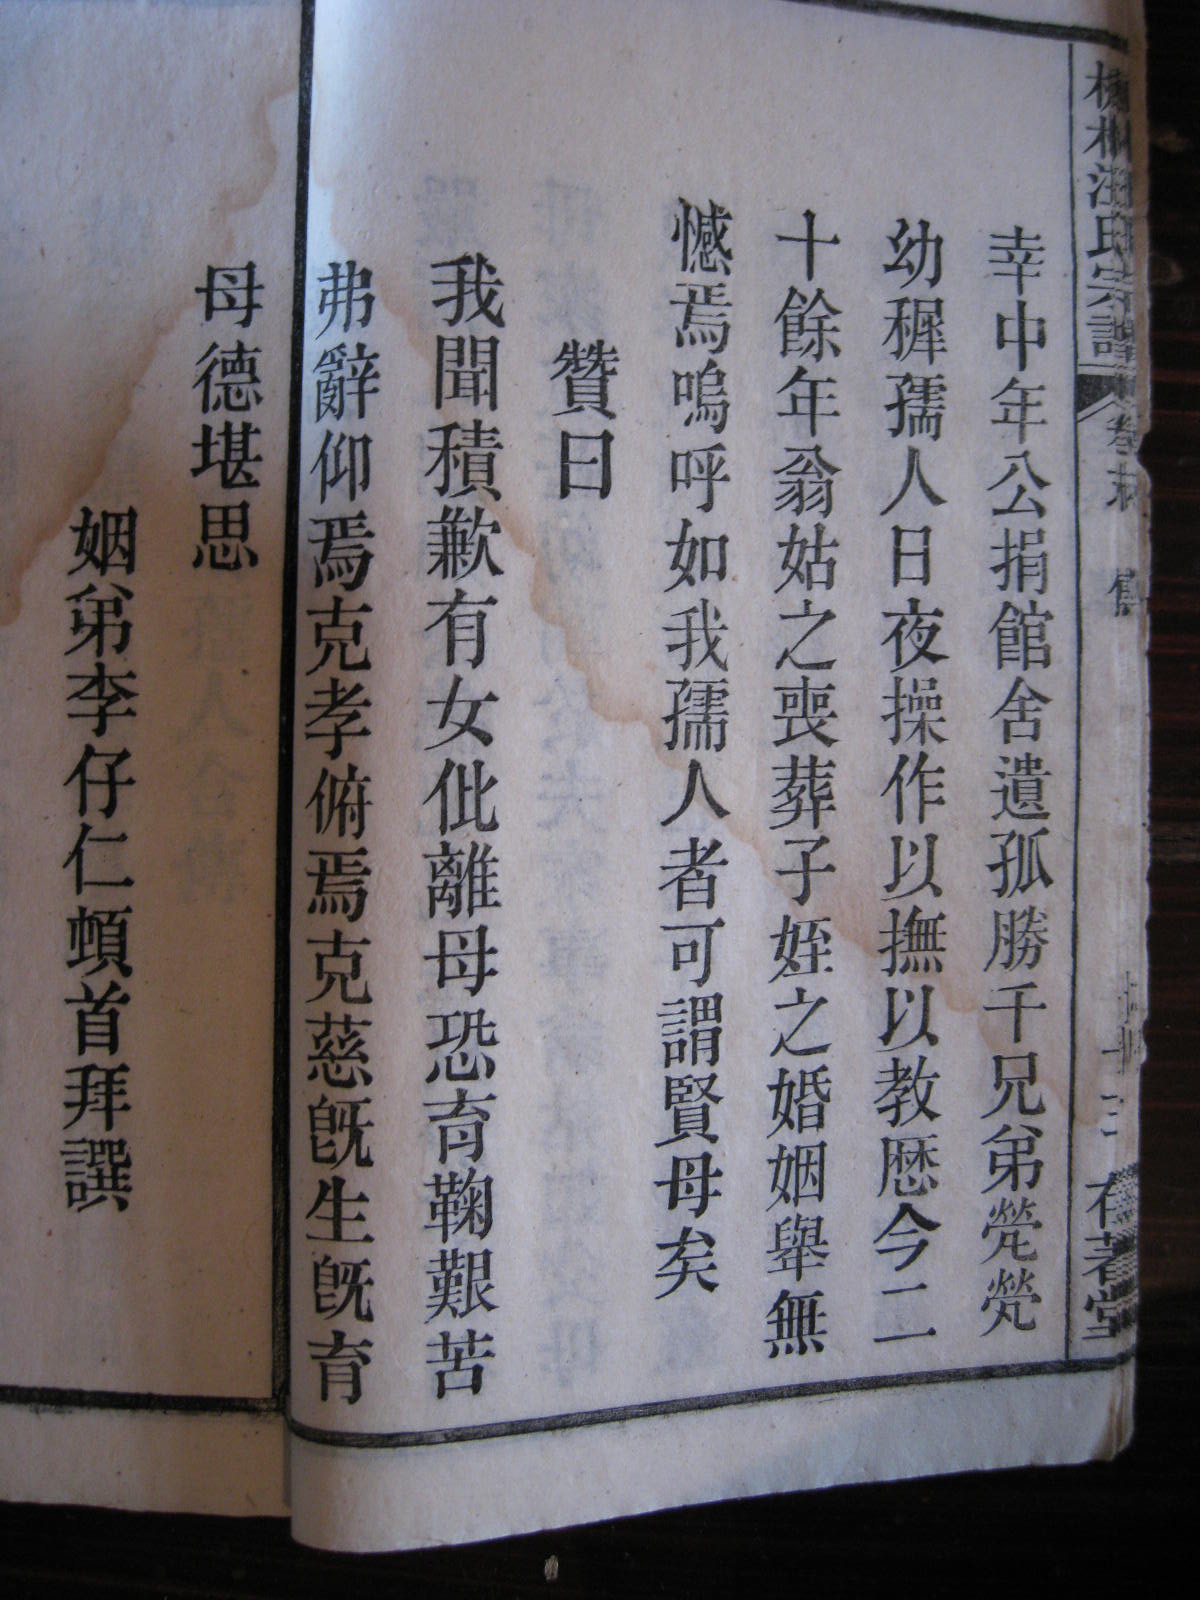 汪氏宗譜 卷末 傳 存著堂
幸中年公捐館舍遺孤勝千兄弟煢煢
幼穉孺人日夜操作以撫以教歷今二
十餘年翁姑之喪葬子姪之婚姻舉無
憾焉嗚呼如我孺人者可謂賢母矣
贊曰
我聞積歉有女仳離母恐育鞠艱苦
弗辭仰焉克孝俯焉克慈旣生旣育
母德堪思
姻弟李仔仁頓首拜譔